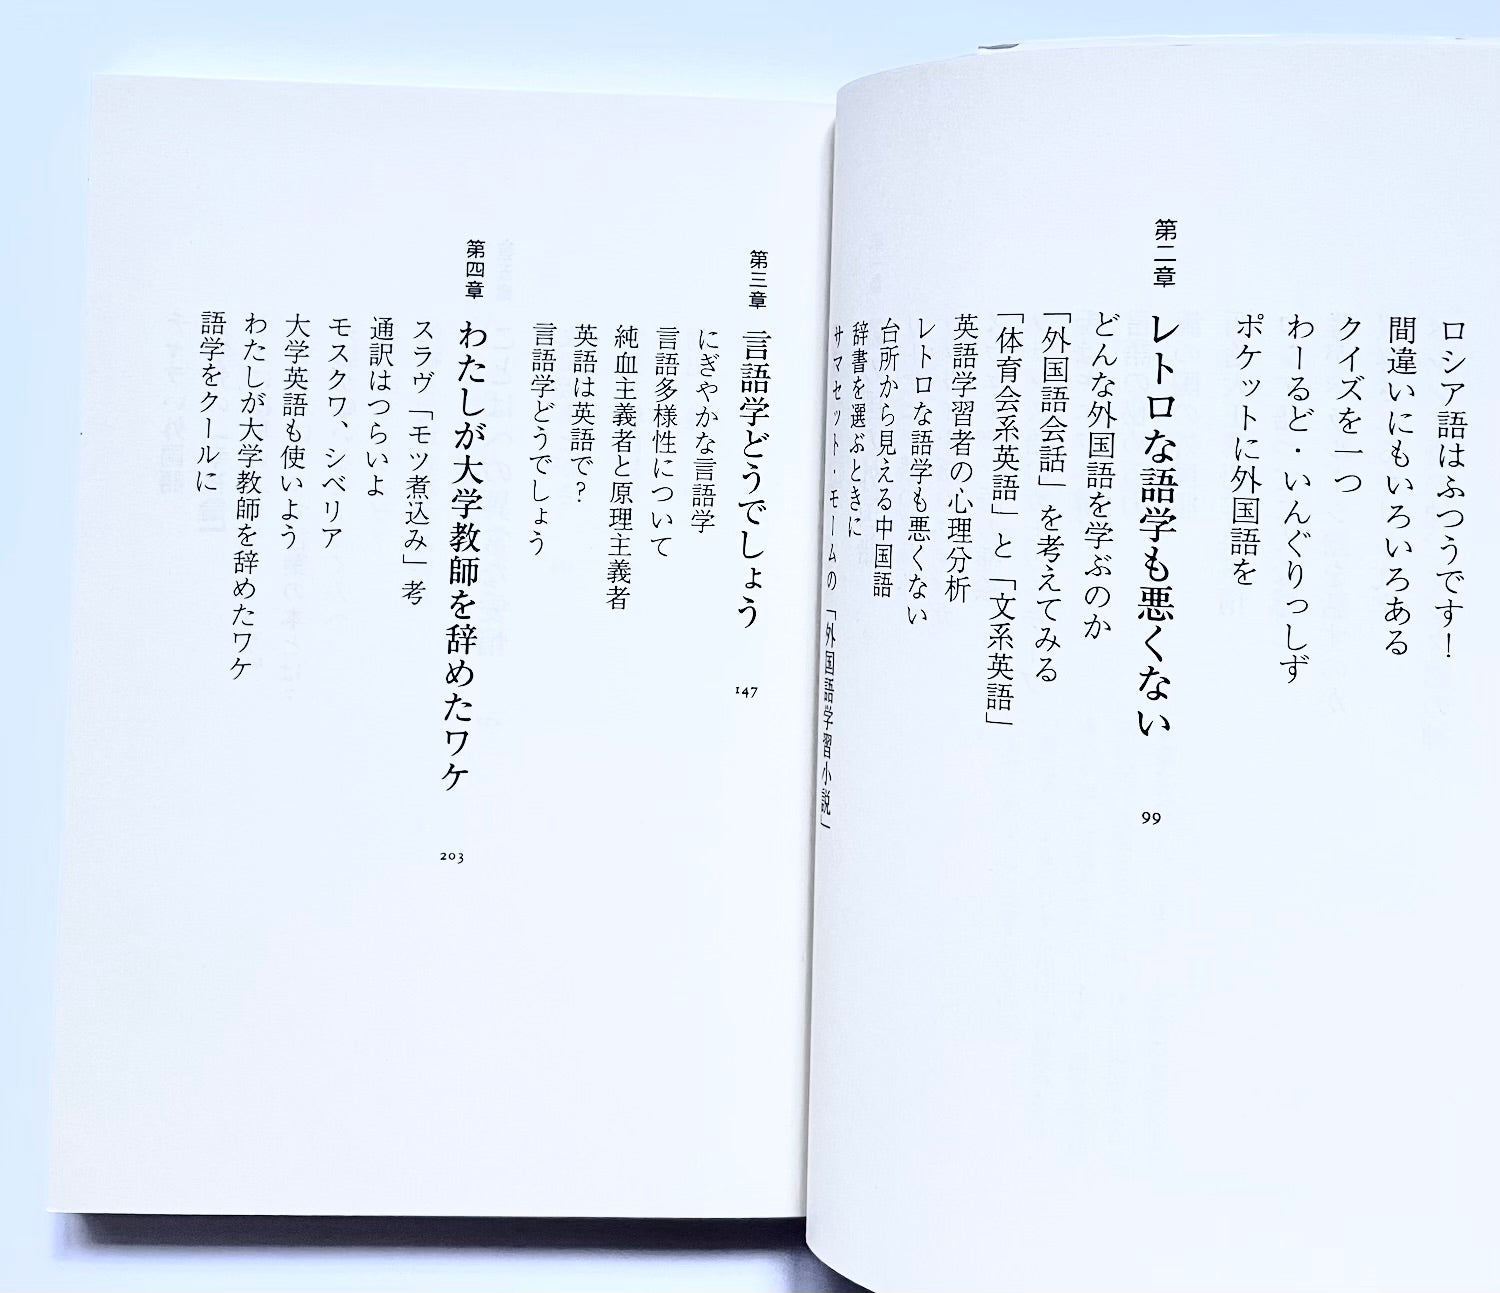 ロシア語はふつうです！
間違いにもいろいろある
クイズを一つ
わーるど・いんぐりっしず
ポケットに外国語を
第二章 レトロな語学も悪くない 99
どんな外国語を学ぶのか
「外国語会話」を考えてみる
「体育会系英語」と「文系英語」
英語学習者の心理分析
レトロな語学も悪くない
台所から見える中国語
辞書を選ぶときに
サマセット・モームの「外国語学習小説」
第三章 言語学どうでしょう 147
にぎやかな言語学
言語多様性について
純血主義者と原理主義者
英語は英語で？
言語学どうでしょう
第四章 わたしが大学教師を辞めたワケ 203
スラヴ「モツ煮込み」考
通訳はつらいよ
モスクワ、シベリア
大学英語も使いよう
わたしが大学教師を辞めたワケ
語学をクールに